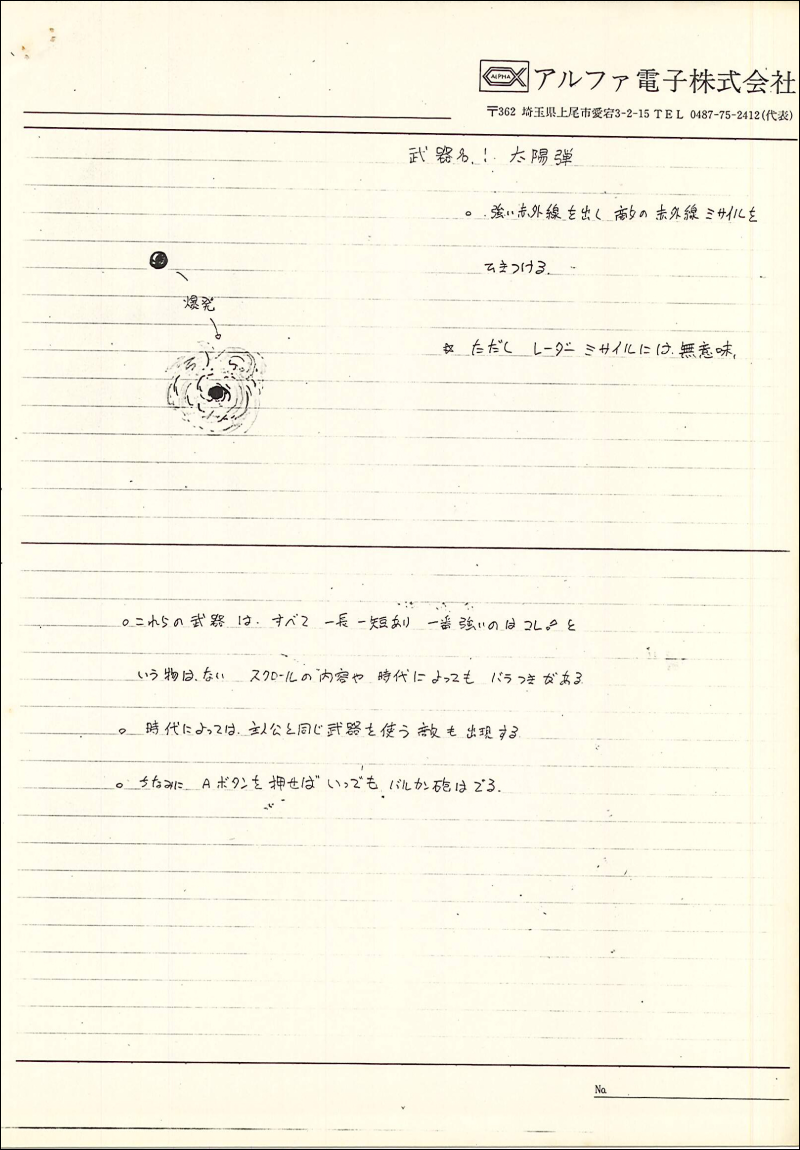 ALPHA アルファ電子株式会社
〒362 埼玉県上尾市愛宕3-2-15 TEL 0487-75-2412(代表)
武器名! 太陽弾
○ 強い赤外線を出し 敵の赤外線ミサイルを
ひきつける.
爆発
☆ ただし レーダーミサイルには 無意味.
○これらの武器は すべて 一長一短あり 一番強いのはコレ。と
いう物は、ない スクロールの内容や 時代によっても バラつきがある
○ 時代によっては、主人公と同じ武器を使う敵も出現する
○ ちなみに Aボタンを押せば いつでも バルカン砲はでる.
No.